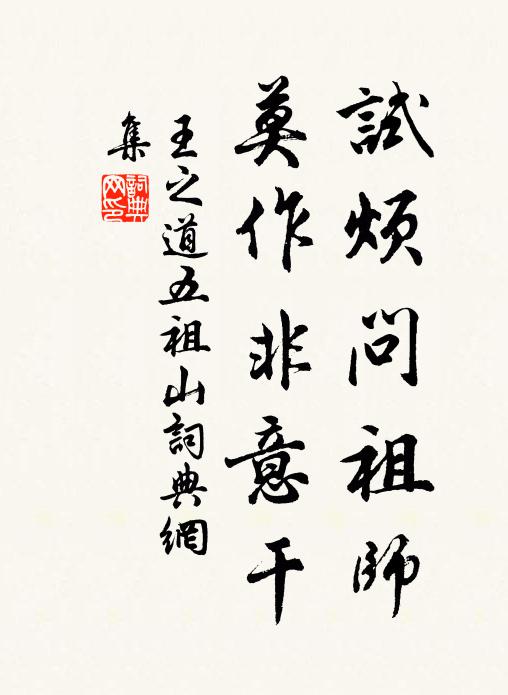 試煩問祖師
莫作非意干
王之道五祖山詞典網
集
詞典
网印